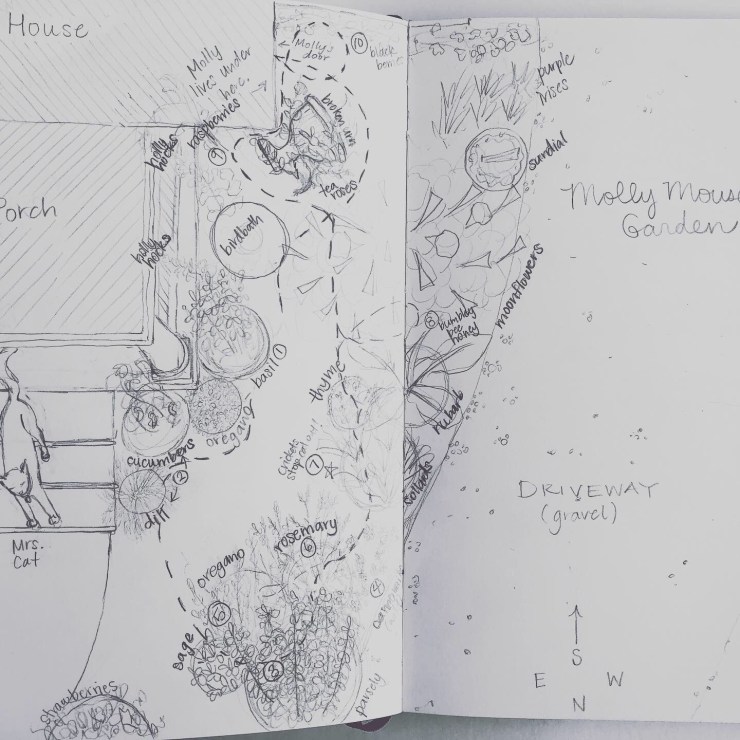 House
Molly
lives under
here.
Molly's
door
10
black
berries
raspberries
9
holly
hocks
broken urn
tea
roses
Porch
birdbath
holly
hocks
basil
1
oregano
thyme
cucumbers
2
dill
7
Mrs.
Cat
rosemary
6
oregano
6
sage
parsely
strawberries
purple
irises
sundial
Molly Mouse
Garden
moonflowers
8
bumble
bee
honey
rubarb
collards
DRIVEWAY
(gravel)
S
E W
N